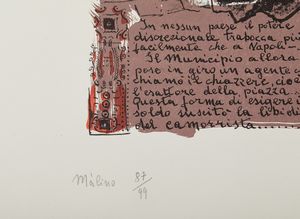 In nessun paese il potere
discrezionale trabocca più
facilmente che a Napoli-
Il Municipio allora
pose in giro un agente
chiamò il chiazzere cioè
l'esattore della piazza.
Questa forma di esigere
soldo suscitò la libidi
del camorrista
Màlino 87/99